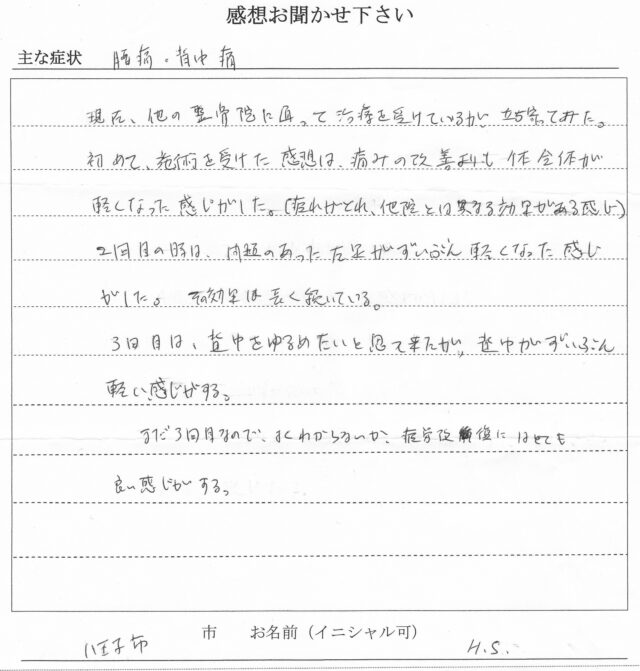 感想お聞かせ下さい
主な症状 腰痛・背中痛
現在、他の整骨院に通って治療を受けているが、立ち寄ってみた。
初めて、施術を受けた感想は、痛みの改善よりも体全体が
軽くなった感じがした。(疲れがとれ、他院とは異なる効果がある感じ)
2回目の時は、問題のあった左足がずいぶん軽くなった感じ
がした。 その効果は長く続いている。
3回目は、背中をゆるめたいと思って来たが、背中がずいぶん
軽い感じがする。
まだ3回目なので、よくわからないが、疲労 復にはとても
良い感じがする。
八王子市 市 お名前(イニシャル可) H.S.